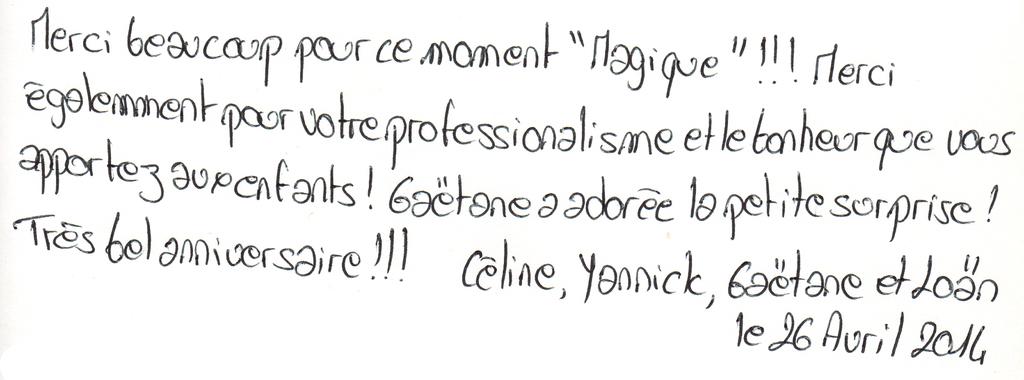 Merci beaucoup pour ce moment "Magique" !!! Merci
également pour votre professionalisme et le bonheur que vous
apportez aux enfants ! Gaëtane a adorée la petite surprise !
Très bel anniversaire !!! Céline, Yannick, Gaëtane et Loän
le 26 Avril 2014